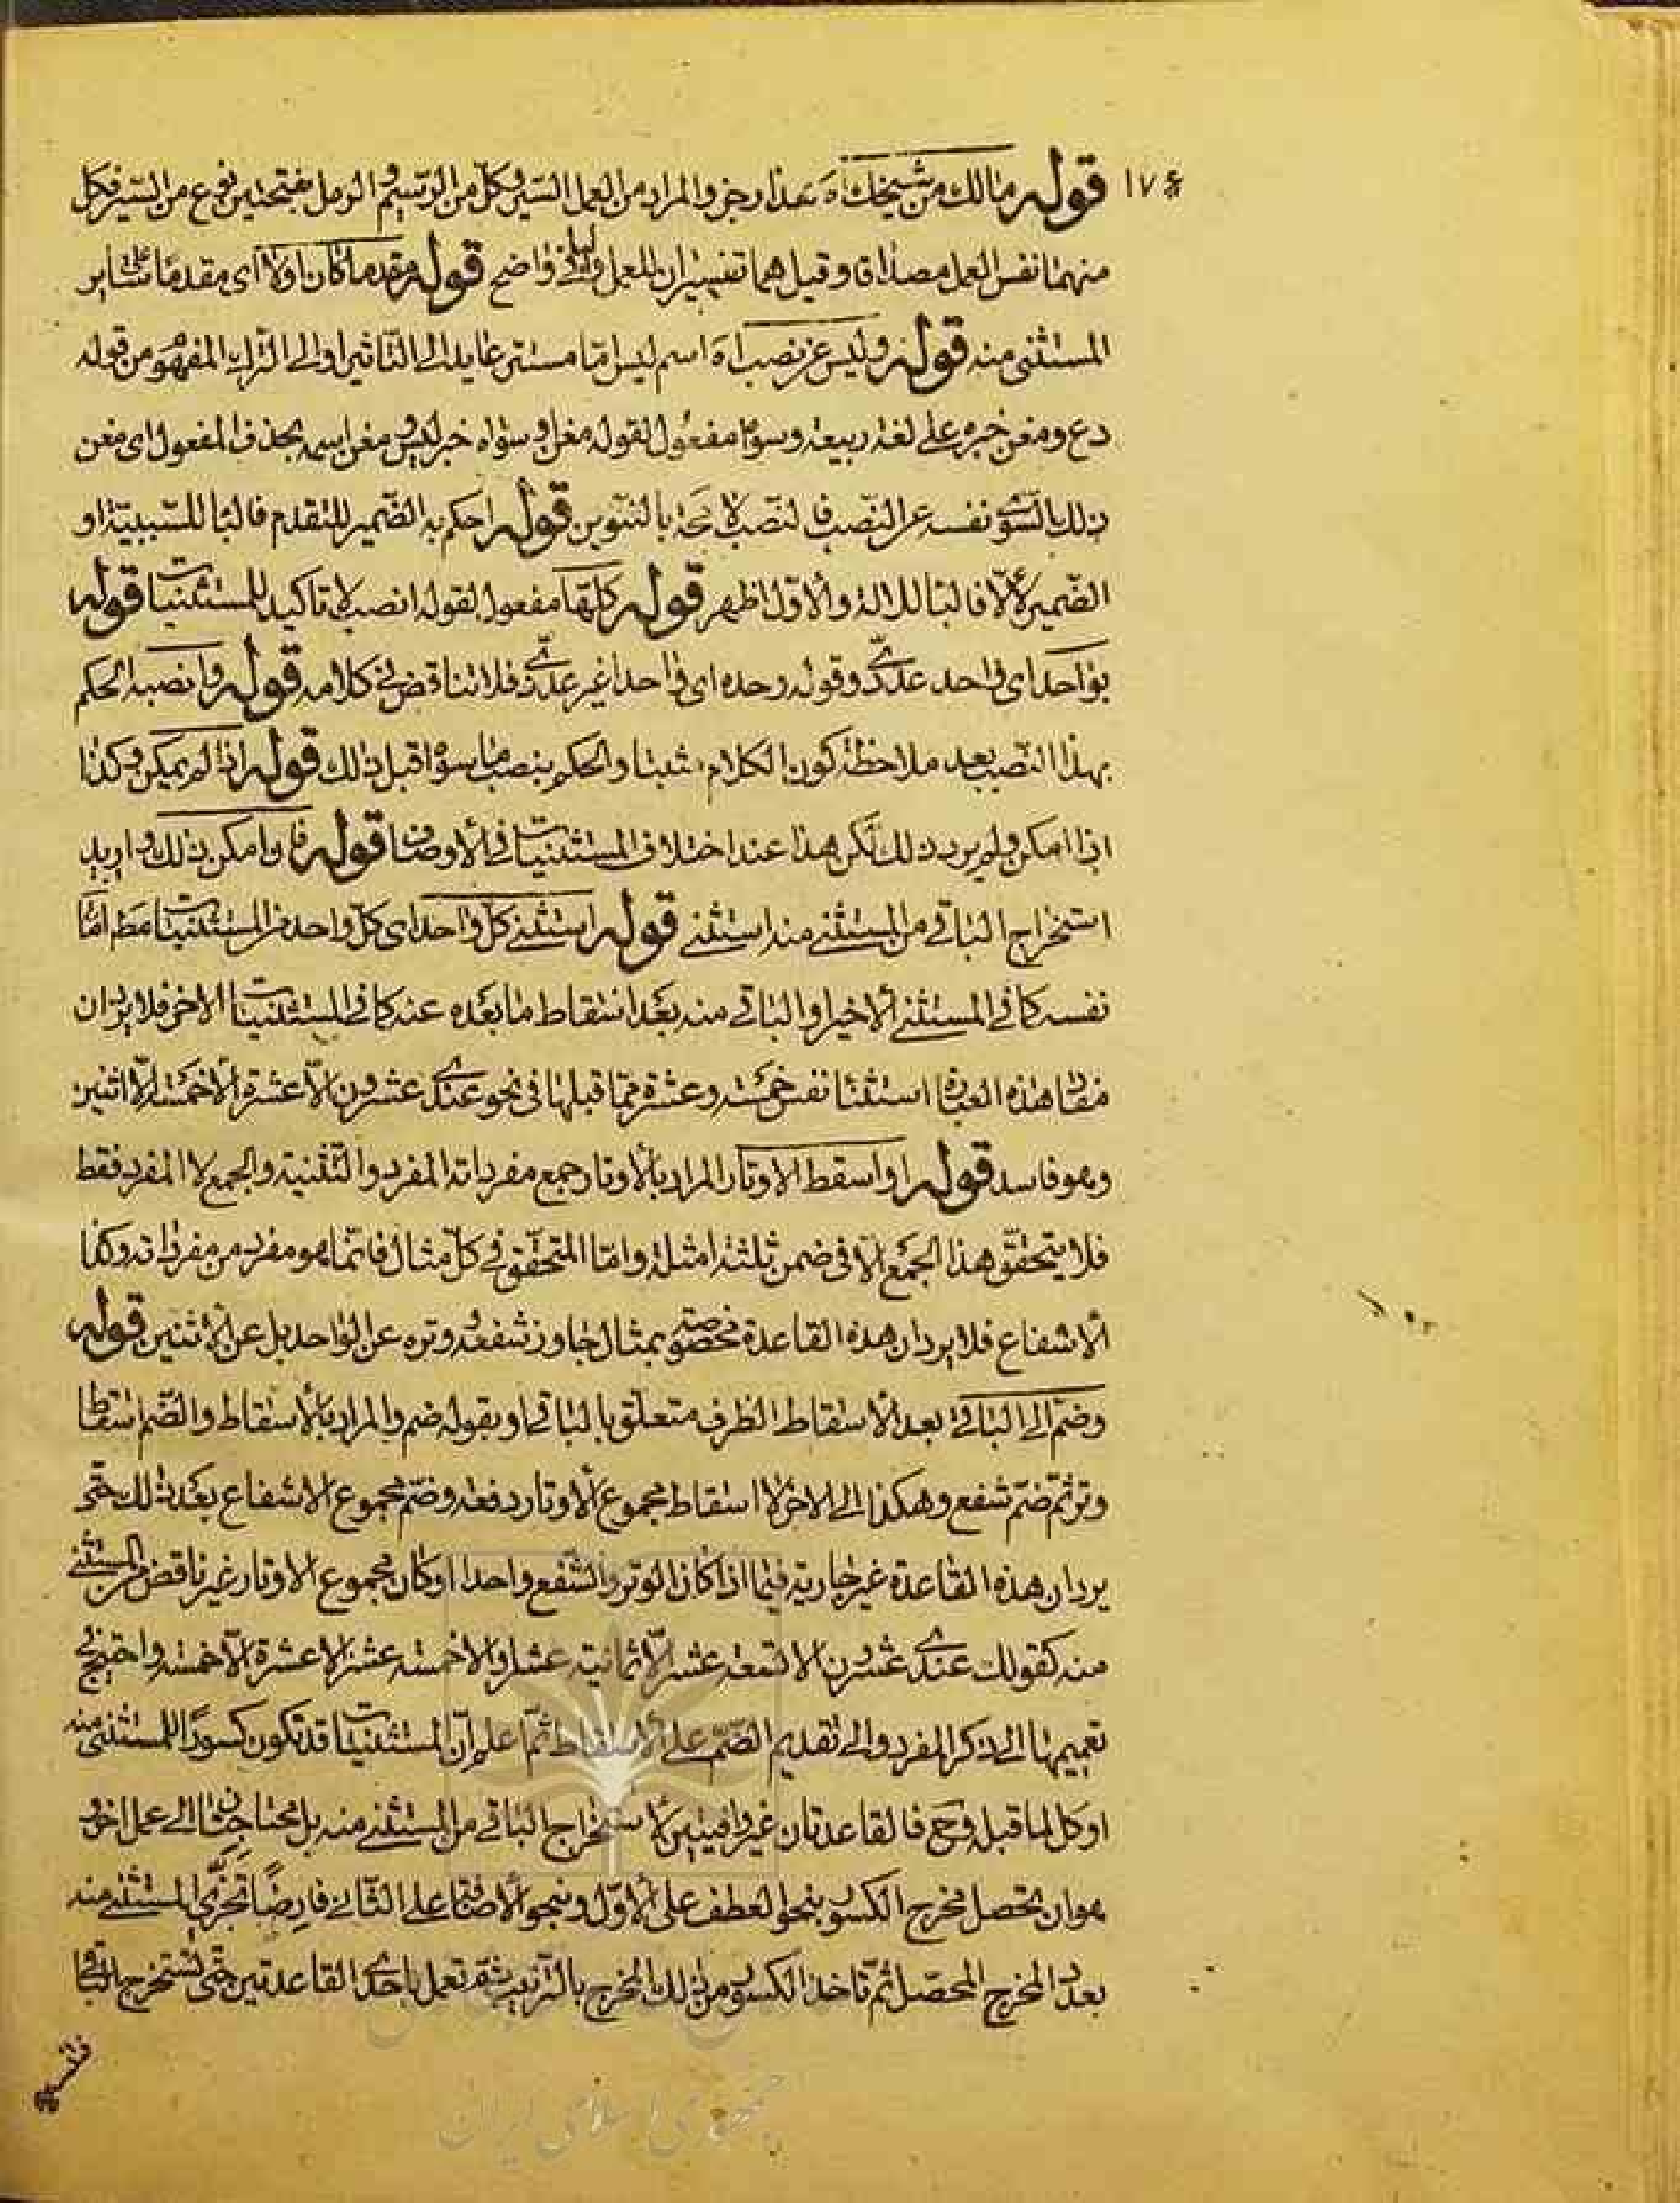 ١٧٤ قوله مالك من شيخك اه هذا رجز والمراد من العمل السير وكل من الرسيم والرمل بفتحتين نوع من السير فكل
منهما نفس العمل مصداقا وقيل هما تفسيران للعمل واضح قوله مقدما كان اولا اى مقدما على ساير
المستثنى منه قوله وليس عن نصب اه اسم ليس اما مستتر عايد الى التاثير او الى الترك المفهوم من قوله
دع ومغن خبره على لغة ربيعة وسواه مفعول لقوله مغن او سواه خبر ليس ومغن اسمه بحذف المفعول اى مغن
ذلك السوى نفسه عن النصب فالنصب لا بالتنوين قوله احكم به الضمير للتقدم فالباء للسببية او
الضمير لالا فالباء للالة والاول اظهر قوله كلها مفعول لقوله انصب لا تاكيد للمستثنيات قوله
بواحد اى واحد عددى وقوله وحده اى واحدا غير عددى فلا تناقض فى كلامه قوله وانصبه الحكم
بهذا النصب بعد ملاحظة كون الكلام مثبتا والحكم بنصب ما سواه قبل ذلك قوله اذا لم يمكن وكذا
اذا امكن ولم يرد ذلك لكن هذا عند اختلاف المستثنيات فى الاوصاف قوله فان امكن ذلك واريد
استخراج الباقى من المستثنى منه استثنى قوله استثنى كل واحد اى كل واحد من المستثنيات مط اما
نفسه كما فى المستثنى الاخير او الباقى منه بعد اسقاط ما بعده عنه كما فى المستثنيات الاخر فلا يرد ان
مفاد هذه العبارة استثناء نفس خمسة وعشرة مما قبلها فى نحو عندى عشرون الا عشرة الا خمسة الا اثنين
وهو فاسد قوله او اسقط الاوتار المراد بالاوتار جمع مفرداته المفرد والتثنية والجمع لا المفرد فقط
فلا يتحقق هذا الجمع الا فى ضمن ثلثة امثلة واما المتحقق فى كل مثال فانما هو مفرد من مفرداته وكذا
الاشفاع فلا يرد ان هذه القاعدة مخصوصة بمثال جاوز شفعه ووتره عن الواحد بل عن الاثنين قوله
وضم الى الباقى بعد الاسقاط الظرف متعلق بالباقى او بقوله ضم والمراد بالاسقاط والضم اسقاط
وتر ثم ضم شفع وهكذا الى الاخر لا اسقاط مجموع الاوتار دفعة وضم مجموع الاشفاع بعد ذلك حتى
يرد ان هذه القاعدة غير جارية فيما اذا كان الوتر والشفع واحدا او كان مجموع الاوتار غير ناقص من المستثنى
منه كقولك عندى عشرون الا تسعة عشر الا ثمانية عشر الا خمسة عشر الا عشرة الا خمسة واحتيج فى
تعميمها الى ذكر المفرد والى تقديم الضم على الاسقاط ثم اعلم ان المستثنيات قد تكون كسورا للمستثنى منه
او كل لما قبله وح فالقاعدتان غير وافيتين لاستخراج الباقى من المستثنى منه بل محتاجتان الى عمل اخر و
هو ان تحصل مخرج الكسور بنحو العطف على الاول وبنحو الاضافة على الثانى فارضا تجزى المستثنى منه
بعدد المخرج المحصل ثم تاخذ الكسور من ذلك المخرج بالترتيب ثم تعمل باحدى القاعدتين حتى تستخرج الباقى
جمهوری اسلامی ایران